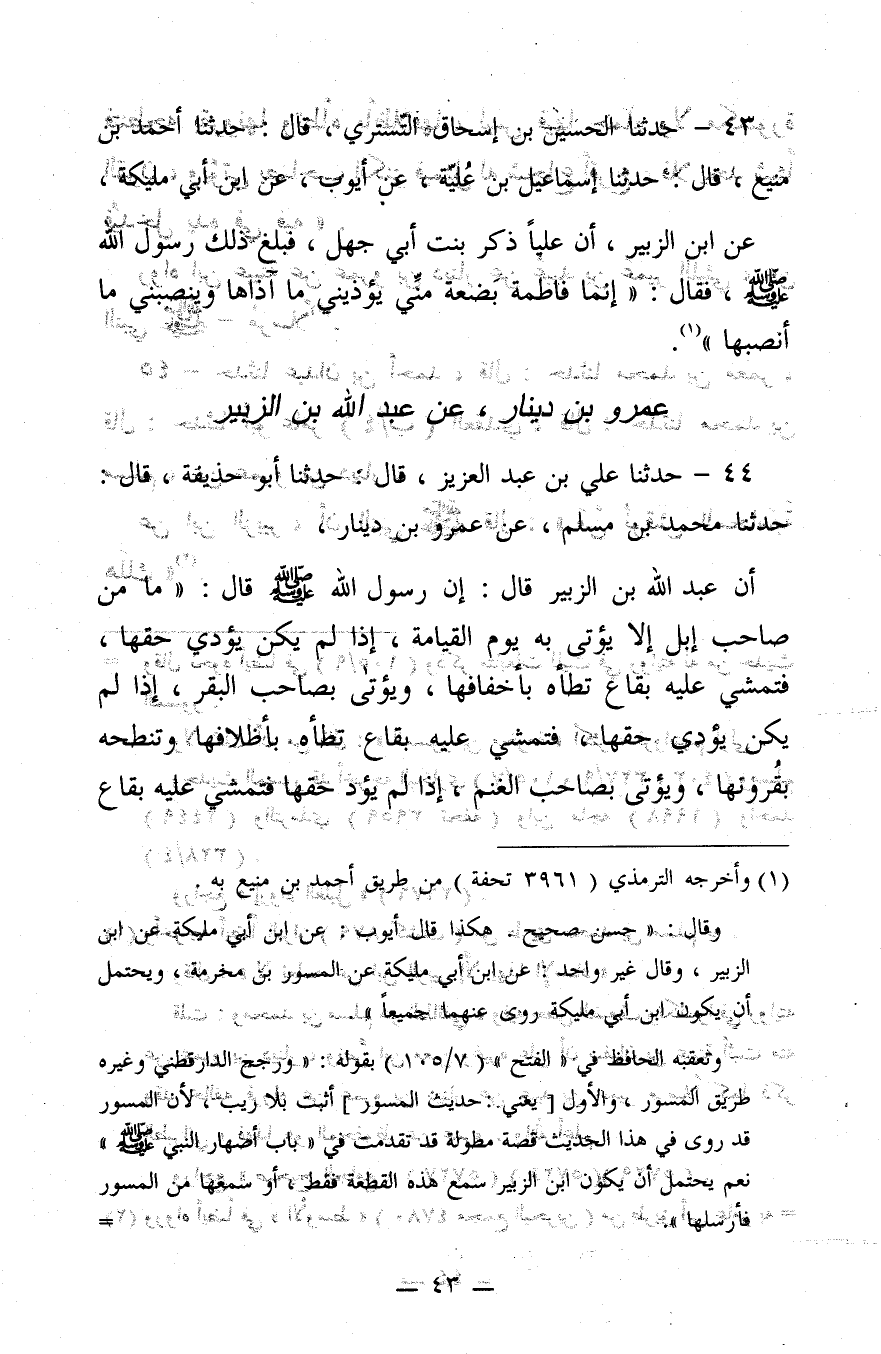 ٤٣ - حدثنا الحسين بن إسحاق التّستري ، قال : حدثنا أحمد بن
منيع ، قال : حدثنا إسماعيل بن عُليّة ، عن أيوب ، عن ابن أبي مليكة ،
عن ابن الزبير ، أن علياً ذكر بنت أبي جهل ، فبلغ ذلك رسول الله
ﷺ ، فقال : « إنما فاطمة بضعة منِّي يؤذيني ما آذاها وينصبني ما
أنصبها »(١).
عمرو بن دينار ، عن عبد الله بن الزبير
٤٤ - حدثنا علي بن عبد العزيز ، قال : حدثنا أبو حذيفة ، قال :
حدثنا محمد بن مسلم ، عن عمرو بن دينار ،
أن عبد الله بن الزبير قال : إن رسول الله ﷺ قال : « ما من
صاحب إبل إلا يؤتى به يوم القيامة ، إذا لم يكن يؤدي حقها ،
فتمشي عليه بقاع تطأه بأخفافها ، ويؤتى بصاحب البقر ، إذا لم
يكن يؤدي حقها ، فتمشي عليه بقاع تطأه بأظلافها وتنطحه
بقُرونها ، ويؤتى بصاحب الغنم ، إذا لم يؤد حقها فتمشي عليه بقاع
(١) وأخرجه الترمذي ( ٣٩٦١ تحفة ) من طريق أحمد بن منيع به .
وقال : « حسن صحيح . هكذا قال أيوب : عن ابن أبي مليكة عن ابن
الزبير ، وقال غير واحد : عن ابن أبي مليكة عن المسور بن مخرمة ، ويحتمل
أن يكون ابن أبي مليكة روى عنهما جميعاً »
وتعقبه الحافظ في « الفتح » ( ١٠٥/٧ ) بقوله : « ورجح الدارقطني وغيره
طريق المسور ، والأول [ يعني : حديث المسور ] أثبت بلا ريب ، لأن المسور
قد روى في هذا الحديث قصة مطولة قد تقدمت في « باب أصهار النبي ﷺ »
نعم يحتمل أن يكون ابن الزبير سمع هذه القطعة فقط ، أو سمعها من المسور
فأرسلها » . =
— ٤٣ —